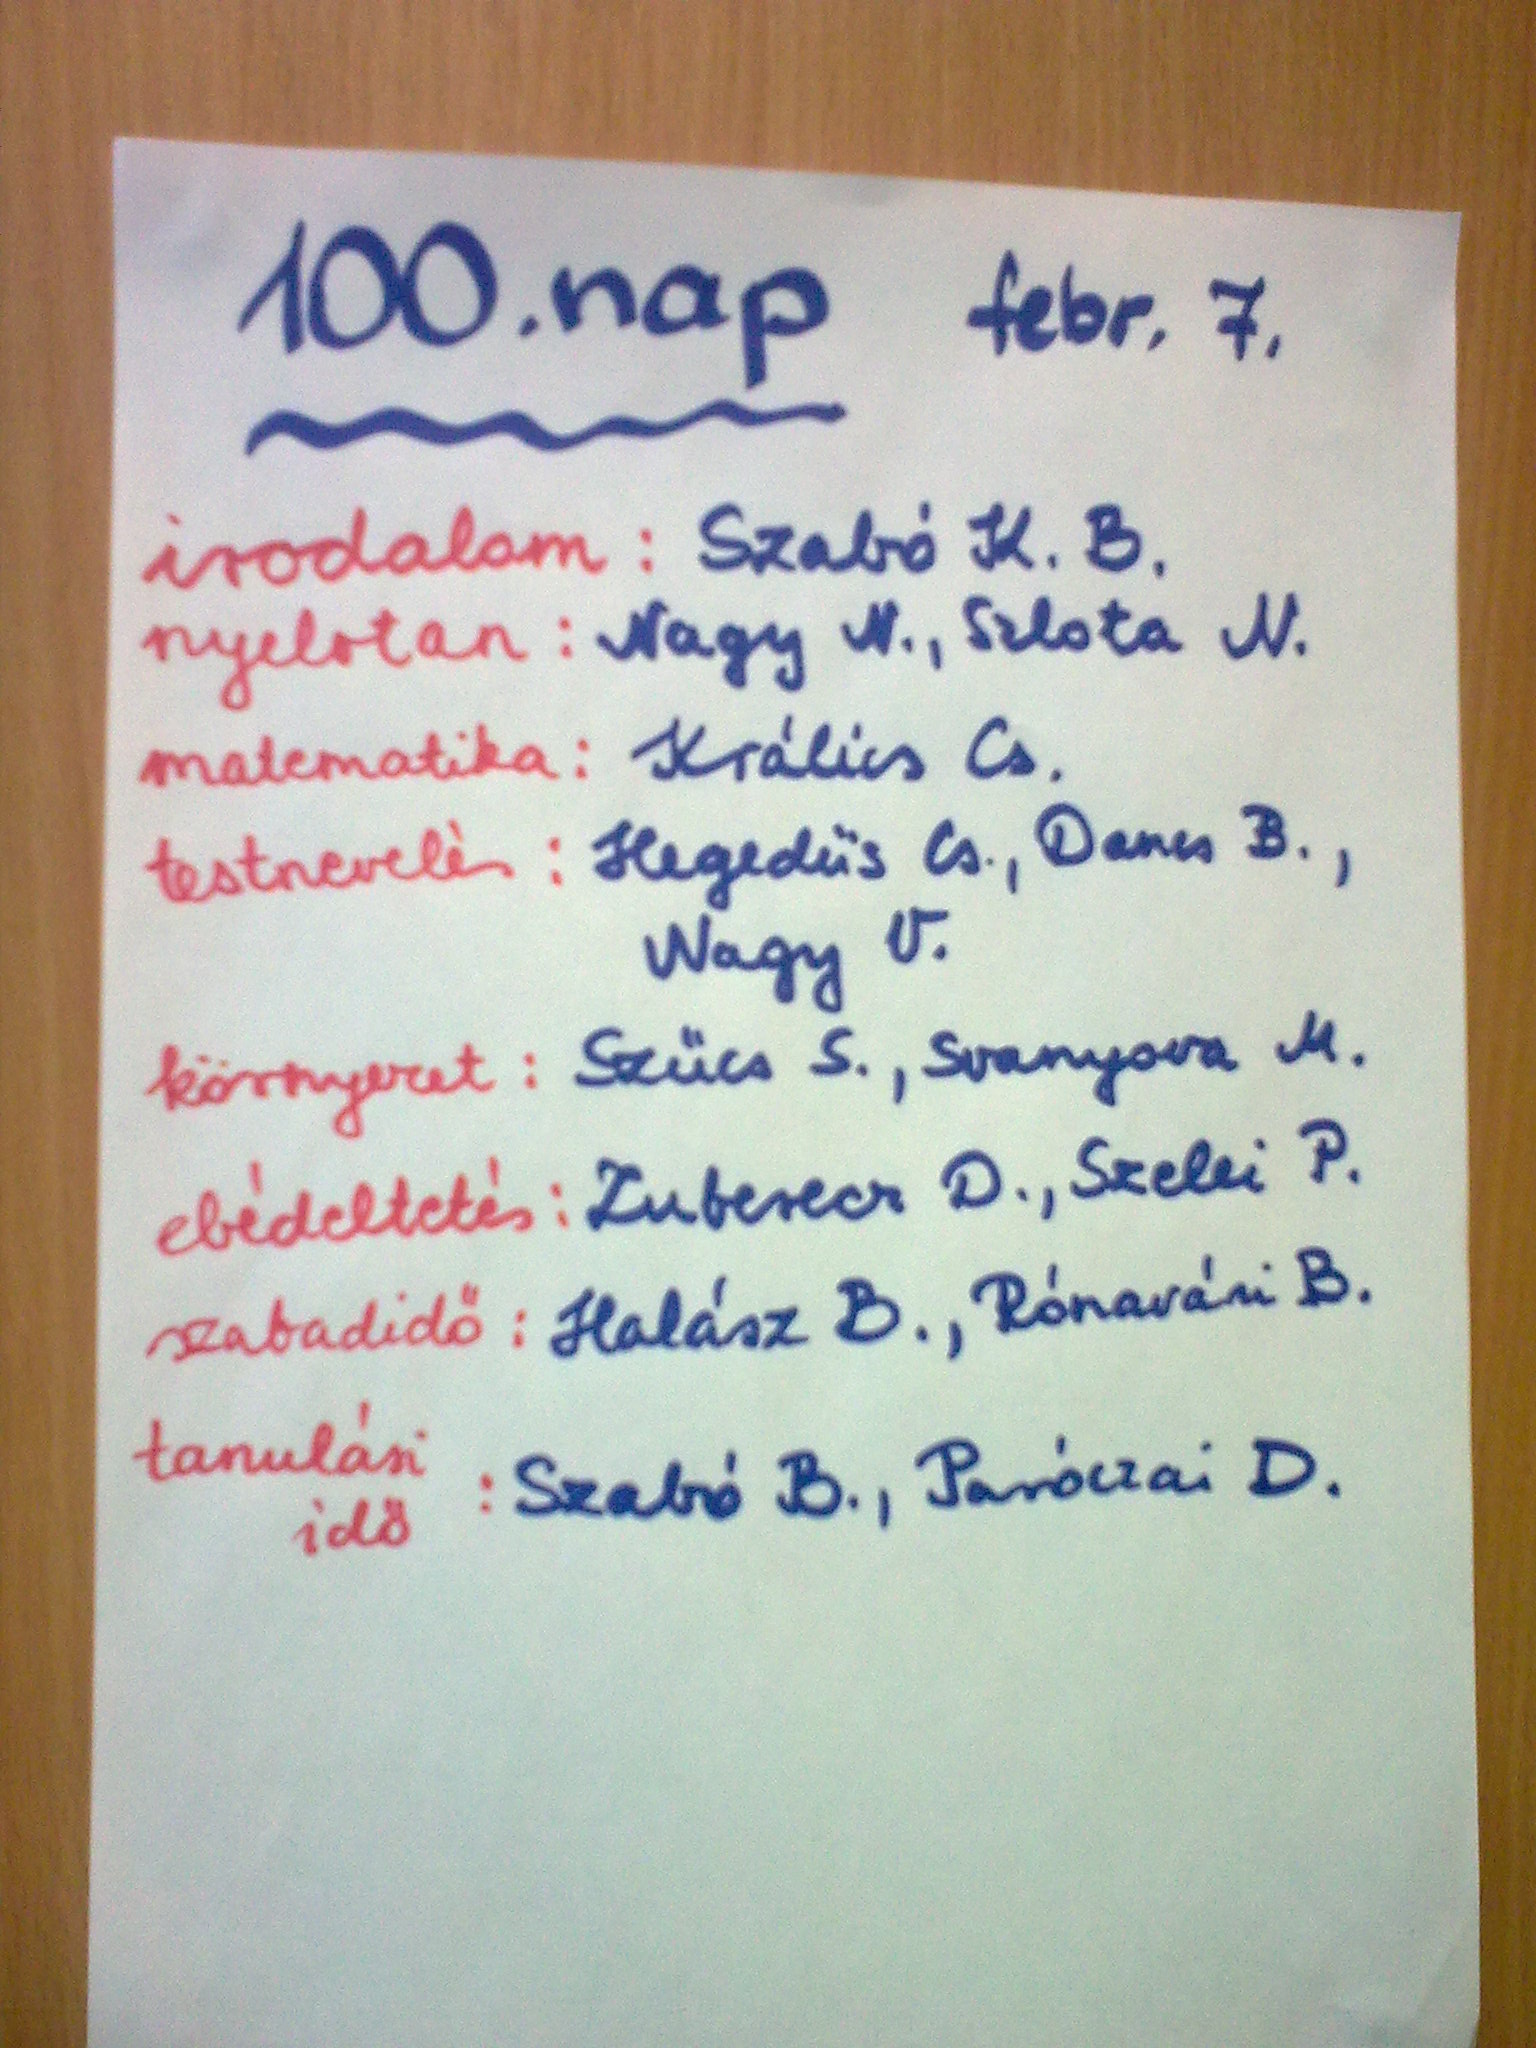 100. nap febr. 7.
irodalom: Szabó K. B.
nyelvtan: Nagy N., Szlota N.
matematika: Králics Cs.
testnevelés: Hegedüs Cs., Dancs B.,
Nagy V.
környezet: Szűcs S., Svanyova M.
ebédeltetés: Zuberecz D., Szelei P.
szabadidő: Halász B., Rónavári B.
tanulási
idő : Szabó B., Paróczai D.